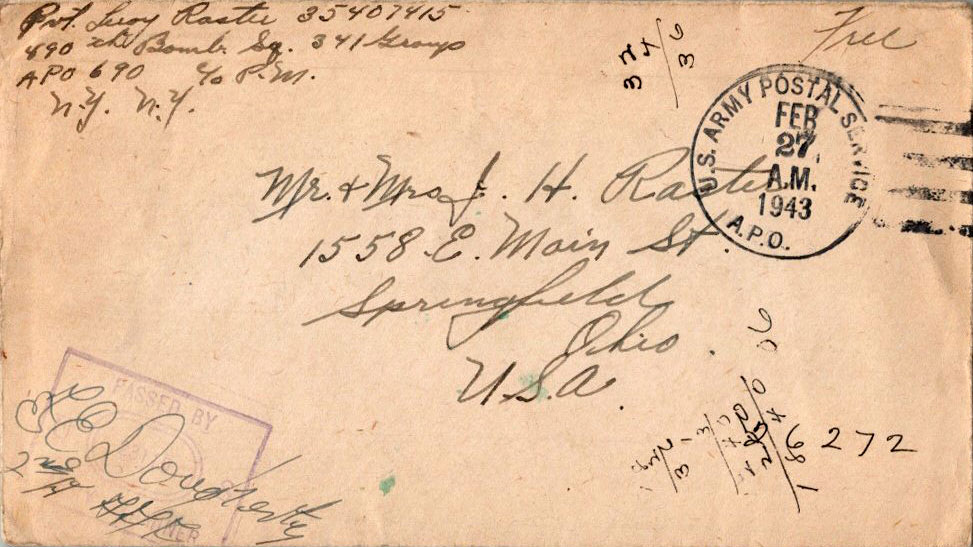 Pvt. Leroy Raster 35407415
490 th Bomb. Sq. 341 Group
APO 690 c/o P.M.
N.Y. N.Y.
Free
U.S. ARMY POSTAL SERVICE
FEB
27
A.M.
1943
A.P.O.
Mr. & Mrs J. H. Raster
1558 E. Main St.
Springfield
Ohio.
U.S.A.
PASSED BY
E Dougherty
2nd Lt
6272